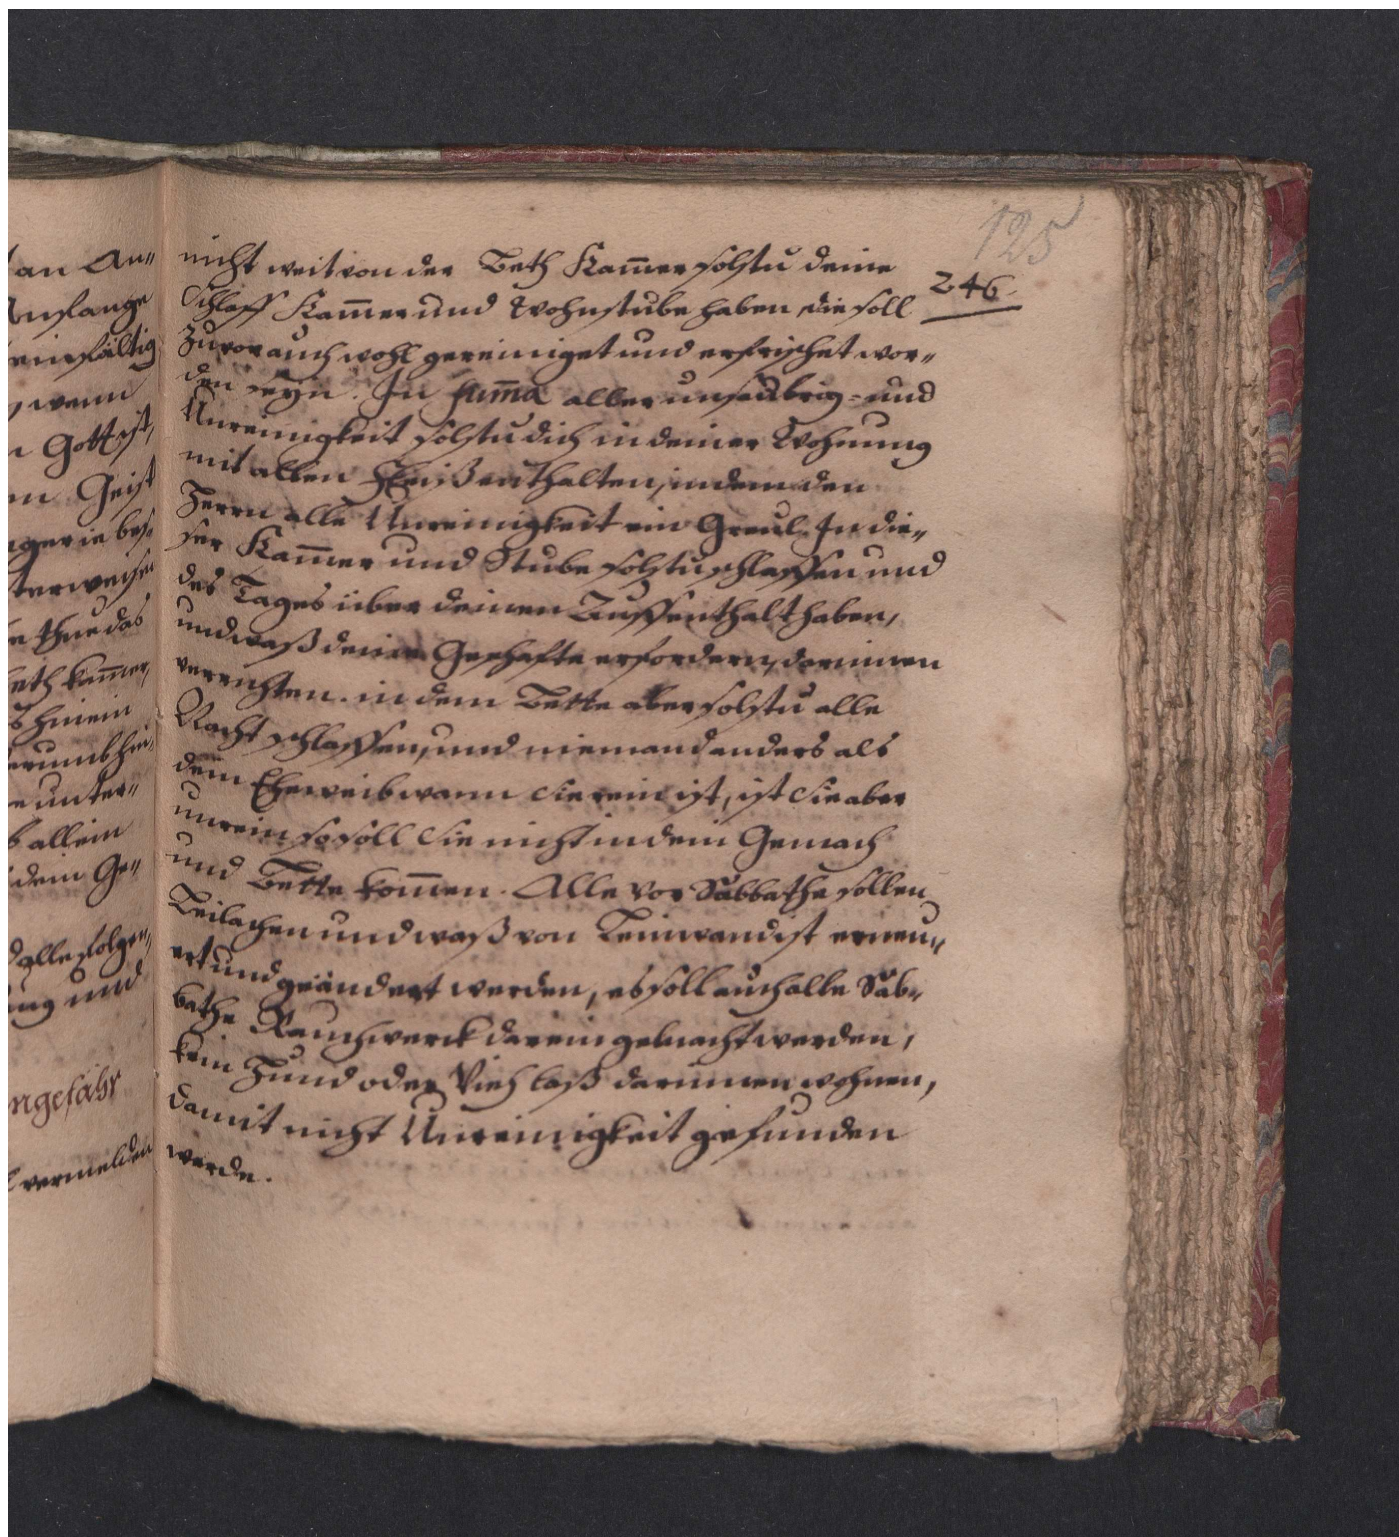 125
246
nicht weit von der Beth Kam̄er solstu deine
Schlaff Kam̄er und Wohnstube haben, die soll
zuvor auch wohl gereiniget und erfrischet wor„
den seyn. In sum̄a aller unsaubrig- und
Unreinigkeit solstu dich in deiner Wohnung
mit allen Fleiß enthalten, indem den
Herrn alle Unreinigkeit ein Greul. In die„
ser Kam̄er und Stube solstu schlaffen und
des Tages über deinen Auffenthalt haben,
und waß deine Geschafte erfordern, darinnen
verrichten. in dem Bette aber solstu alle
Nacht schlaffen, und niemand anders als
dein Eheweib wann sie rein ist, ist sie aber
unrein so soll sie nicht in dein Gemach
und Bette kom̄en. Alle vor Sabbathe sollen
Leilachen und waß von Leinwand ist erneu„
ert und geändert werden, es soll auch alle Sab„
bathe Rauchwerck darein gebracht werden,
kein Hund oder Vieh laß darinnen wohnen,
damit nicht Unreinigkeit gefunden
werde.
an An„
Anfange
einfältig
wenn
Gott ist,
Geist
thue das
beth kam̄er,
hinein
unter„
allein
dein Ge„
alle folgen„
und
ungefähr
vermelden